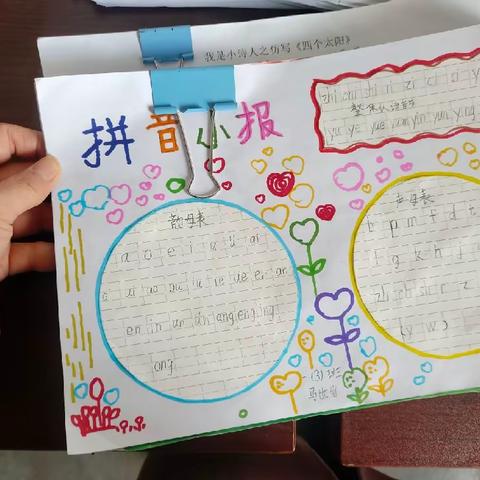 我是小诗人之仿写《四个太阳》
拼音小报
zhi chi shi ri zi ci si y
整体认读音节
yu ye yue yuan yin yun ying
韵母表
a o e i u ü ai
ei ui ao ou iu ie üe er an
en in un ün ang eng ing
ong
声母表
b p m f d t
g k h j
zh ch sh r z
y w